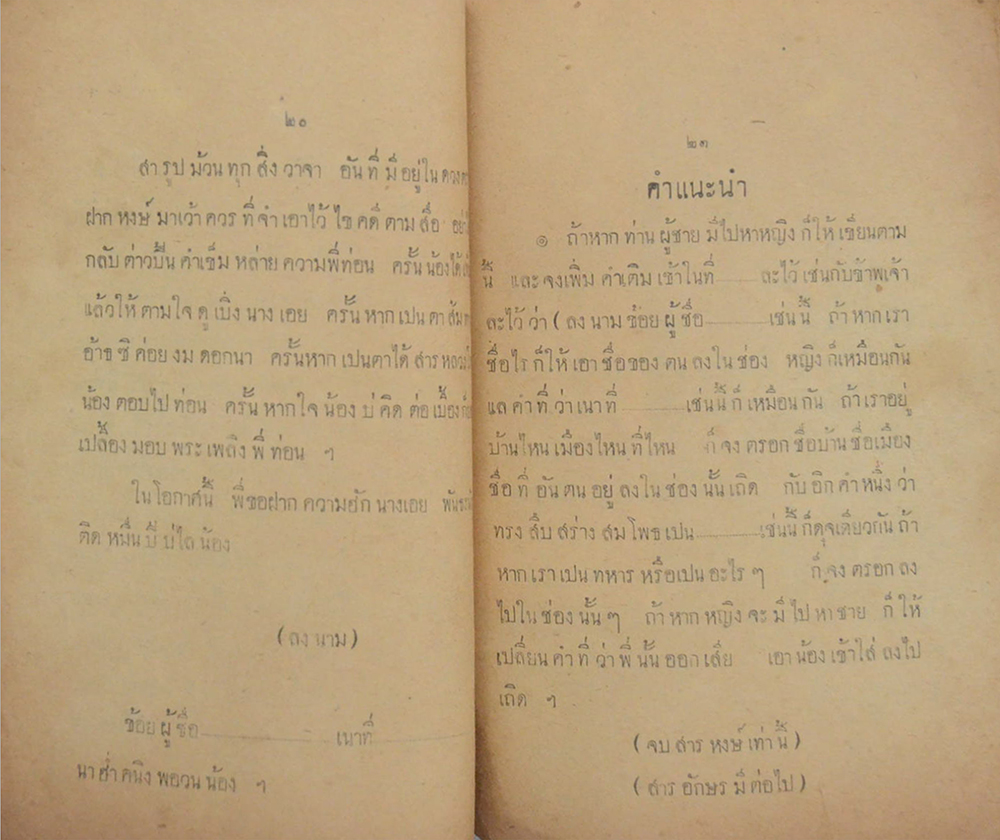 ๒๐
สำ รูป ม้วน ทุก สิ่ง วาจา อัน ที่ มี อยู่ ใน ดวง
ฝาก หงษ์ มาเว้า ควร ที่ จำ เอาไว้ ไข คดี ตาม สื่อ
กลับ ต่าวปืน คำเข็ม หล่าย ความพี่ท่อน ครั้น น้องได้
แล้วให้ ตามใจ ดู เบิ่ง นาง เอย ครั้น หาก เปน ตา ส้ม
อ้าธ ซิ ค่อย งม ดอกนา ครั้นหาก เปนตาได้ สาร หลวง
น้อง ตอบไป ท่อน ครั้น หากใจ น้อง บ่ คิด ต่อ เบื้อง
เปลื้อง มอบ พระ เพลิง พี่ ท่อน ฯ
ในโอกาศนี้ พี่ขอฝาก ความฮัก นางเอย
ติด หมื่น ปี บ่ไล น้อง
( ลง นาม )
ข้อย ผู้ ชื่อ ............ เนาที่ ............
นา ฮ่ำ คนิง พอวน น้อง ฯ
๒๓
คำแนะนำ
๑ ถ้าหาก ท่าน ผู้ชาย มีไปหาหญิง ก็ให้ เขียนตาม
นี้ และ จงเพิ่ม คำเติม เข้าในที่ ...... ละไว้ เช่นกับข้าพเจ้า
ละไว้ ว่า ( ลง นาม ข้อย ผู้ ชื่อ ............ เช่น นี้ ถ้า หาก เรา
ชื่อไร ก็ให้ เอา ชื่อของ ตน ลงใน ช่อง หญิง ก็เหมือนกัน
แล คำ ที่ ว่า เนา ที่ ............ เช่นนี้ ก็ เหมือน กัน ถ้า เราอยู่
บ้านไหน เมืองไหน ที่ไหน ก็ จง ตรอก ชื่อบ้าน ชื่อเมือง
ชื่อ ที่ อัน ตน อยู่ ลงใน ช่อง นั้น เถิด กับ อีก คำ หนึ่ง ว่า
ทรง สืบ สร่าง สม โพธ เปน ............ เช่นนี้ ก็ดุจเดียวกัน ถ้า
หาก เรา เปน ทหาร หรือเปน อะไร ๆ ก็ จง ตรอก ลง
ไปใน ช่อง นั้น ๆ ถ้า หาก หญิง จะ มี ไป หา ชาย ก็ ให้
เปลี่ยน คำ ที่ ว่า พี่ นั้น ออก เสีย เอา น้อง เข้า ใส่ ลงไป
เถิด ฯ
( จบ สาร หงษ์ เท่า นี้ )
( สาร อักษร มี ต่อไป )